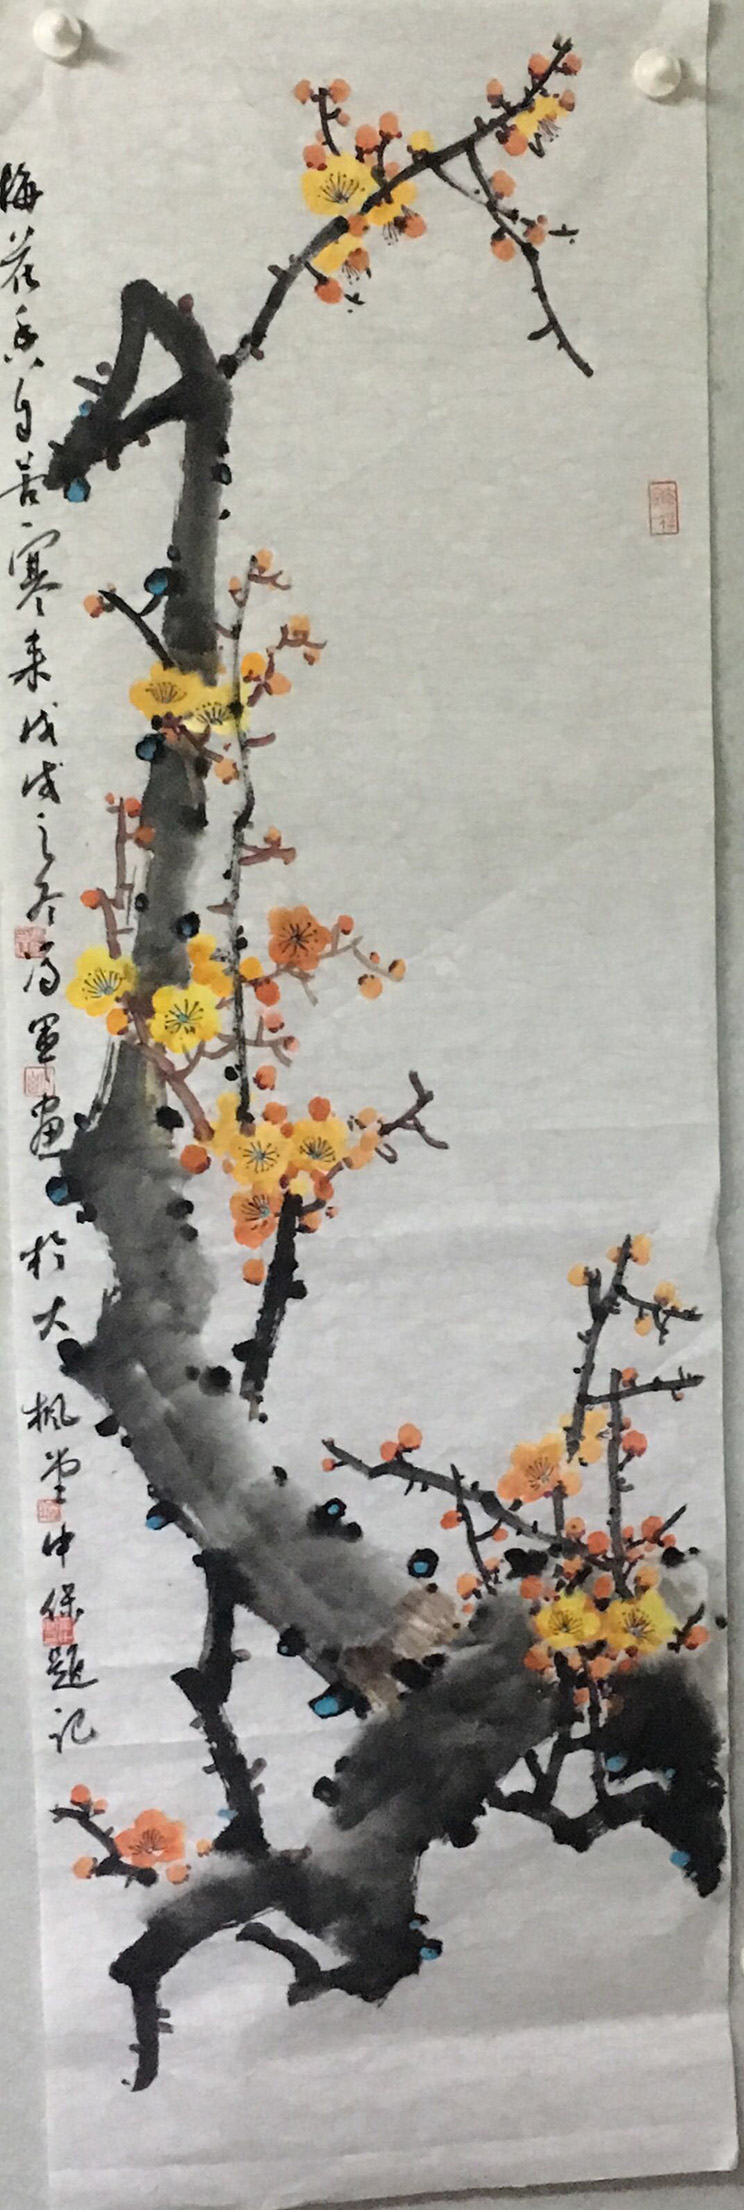 梅花香自苦寒来戊戌之冬海墨画於大枫堂中保题记